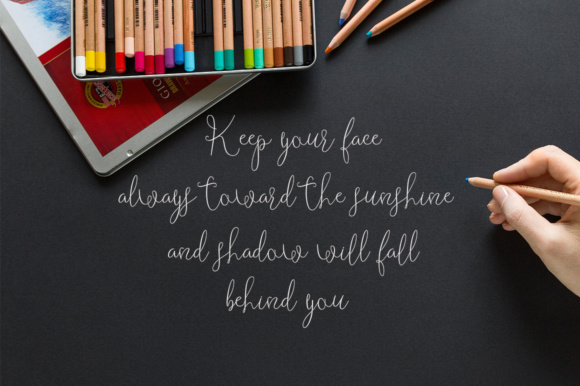 Keep your face
always toward the sunshine
and shadow will fall
behind you